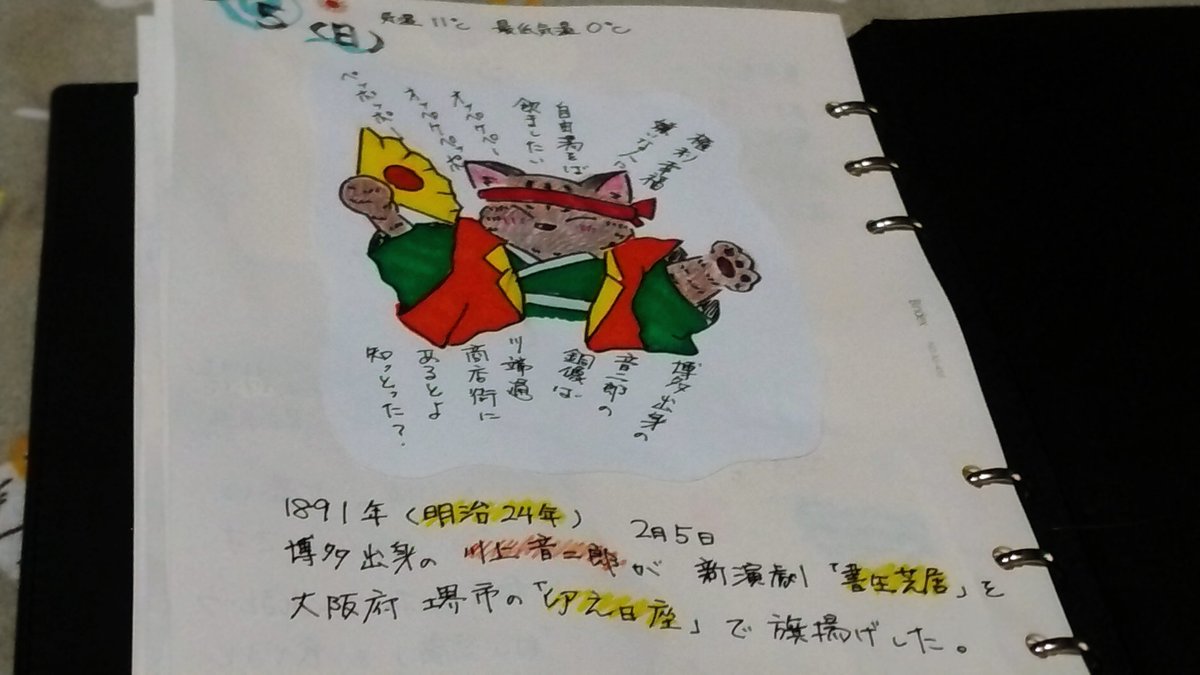 5
(日)
気温 11℃ 最低気温 0℃
権利幸福
嫌いな人に
自由湯をば
飲ましたい
オッペケペー
オッペケペッポー
ペッポッポー
博多出身の
音二郎の
銅像は
川端通
商店街に
あるとよ
知っとった?
1891年(明治24年) 2月5日
博多出身の 川上音二郎が 新演劇「書生芝居」を
大阪府 堺市の「卯之日座」で旗揚げした。